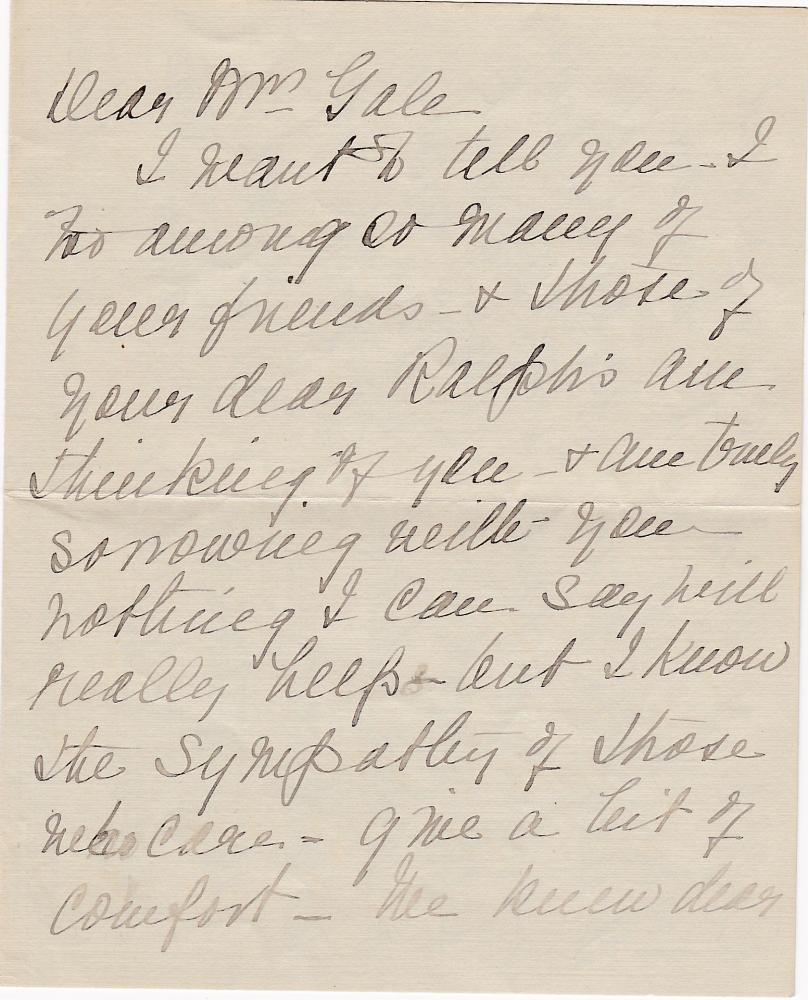 Dear Mrs Gale
I want to tell you - I
too among so many of
your friends - & those of
your dear Ralph's am
thinking of you - & am truly
sorrowing with you
nothing I can say will
really help - but I know
the sympathy of those
who care - give a bit of
comfort - We knew dear